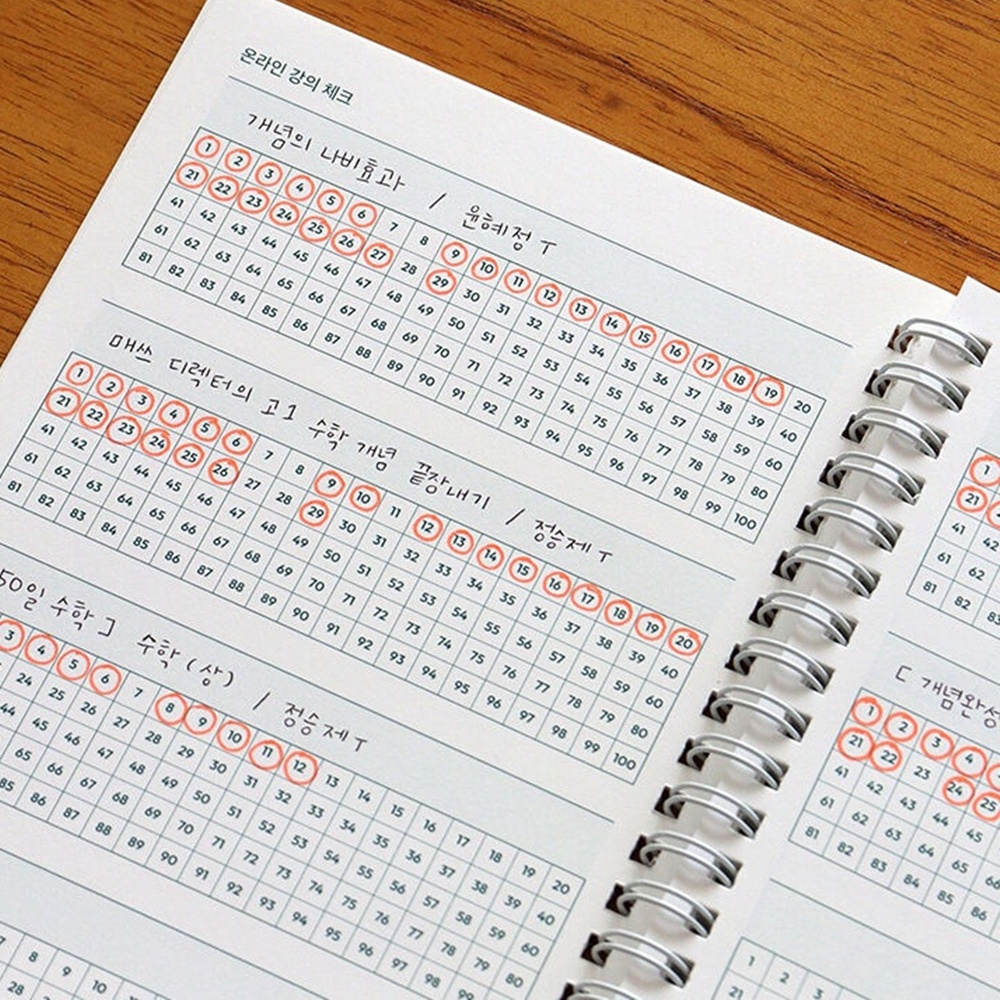 온라인 강의 체크
개념의 나비효과 / 윤혜정 T
1 2 3 4 5 6 7 8 9 10 11 12 13 14 15 16 17 18 19 20
21 22 23 24 25 26 27 28 29 30 31 32 33 34 35 36 37 38 39 40
41 42 43 44 45 46 47 48 49 50 51 52 53 54 55 56 57 58 59 60
61 62 63 64 65 66 67 68 69 70 71 72 73 74 75 76 77 78 79 80
81 82 83 84 85 86 87 88 89 90 91 92 93 94 95 96 97 98 99 100
매쓰 디렉터의 고1 수학 개념 끝장내기 / 정승제 T
1 2 3 4 5 6 7 8 9 10 11 12 13 14 15 16 17 18 19 20
21 22 23 24 25 26 27 28 29 30 31 32 33 34 35 36 37 38 39 40
41 42 43 44 45 46 47 48 49 50 51 52 53 54 55 56 57 58 59 60
61 62 63 64 65 66 67 68 69 70 71 72 73 74 75 76 77 78 79 80
81 82 83 84 85 86 87 88 89 90 91 92 93 94 95 96 97 98 99 100
50일 수학] 수학(상) / 정승제 T
3 4 5 6 7 8 9 10 11 12 13 14 15 16 17 18 19 20
24 25 26 27 28 29 30 31 32 33 34 35 36 37 38 39 40
44 45 46 47 48 49 50 51 52 53 54 55 56 57 58 59 60
65 66 67 68 69 70 71 72 73 74 75 76 77 78 79 80
85 86 87 88 89 90 91 92 93 94 95 96 97 98 99
8 9 10
28
1
21
41 42
61 62
81 82 83
[개념완성
1 2 3 4
21 22 23 24 25
41 42 43 44 45
61 62 63 64 65 66
81 82 83 84 85 86
1 2 3
21